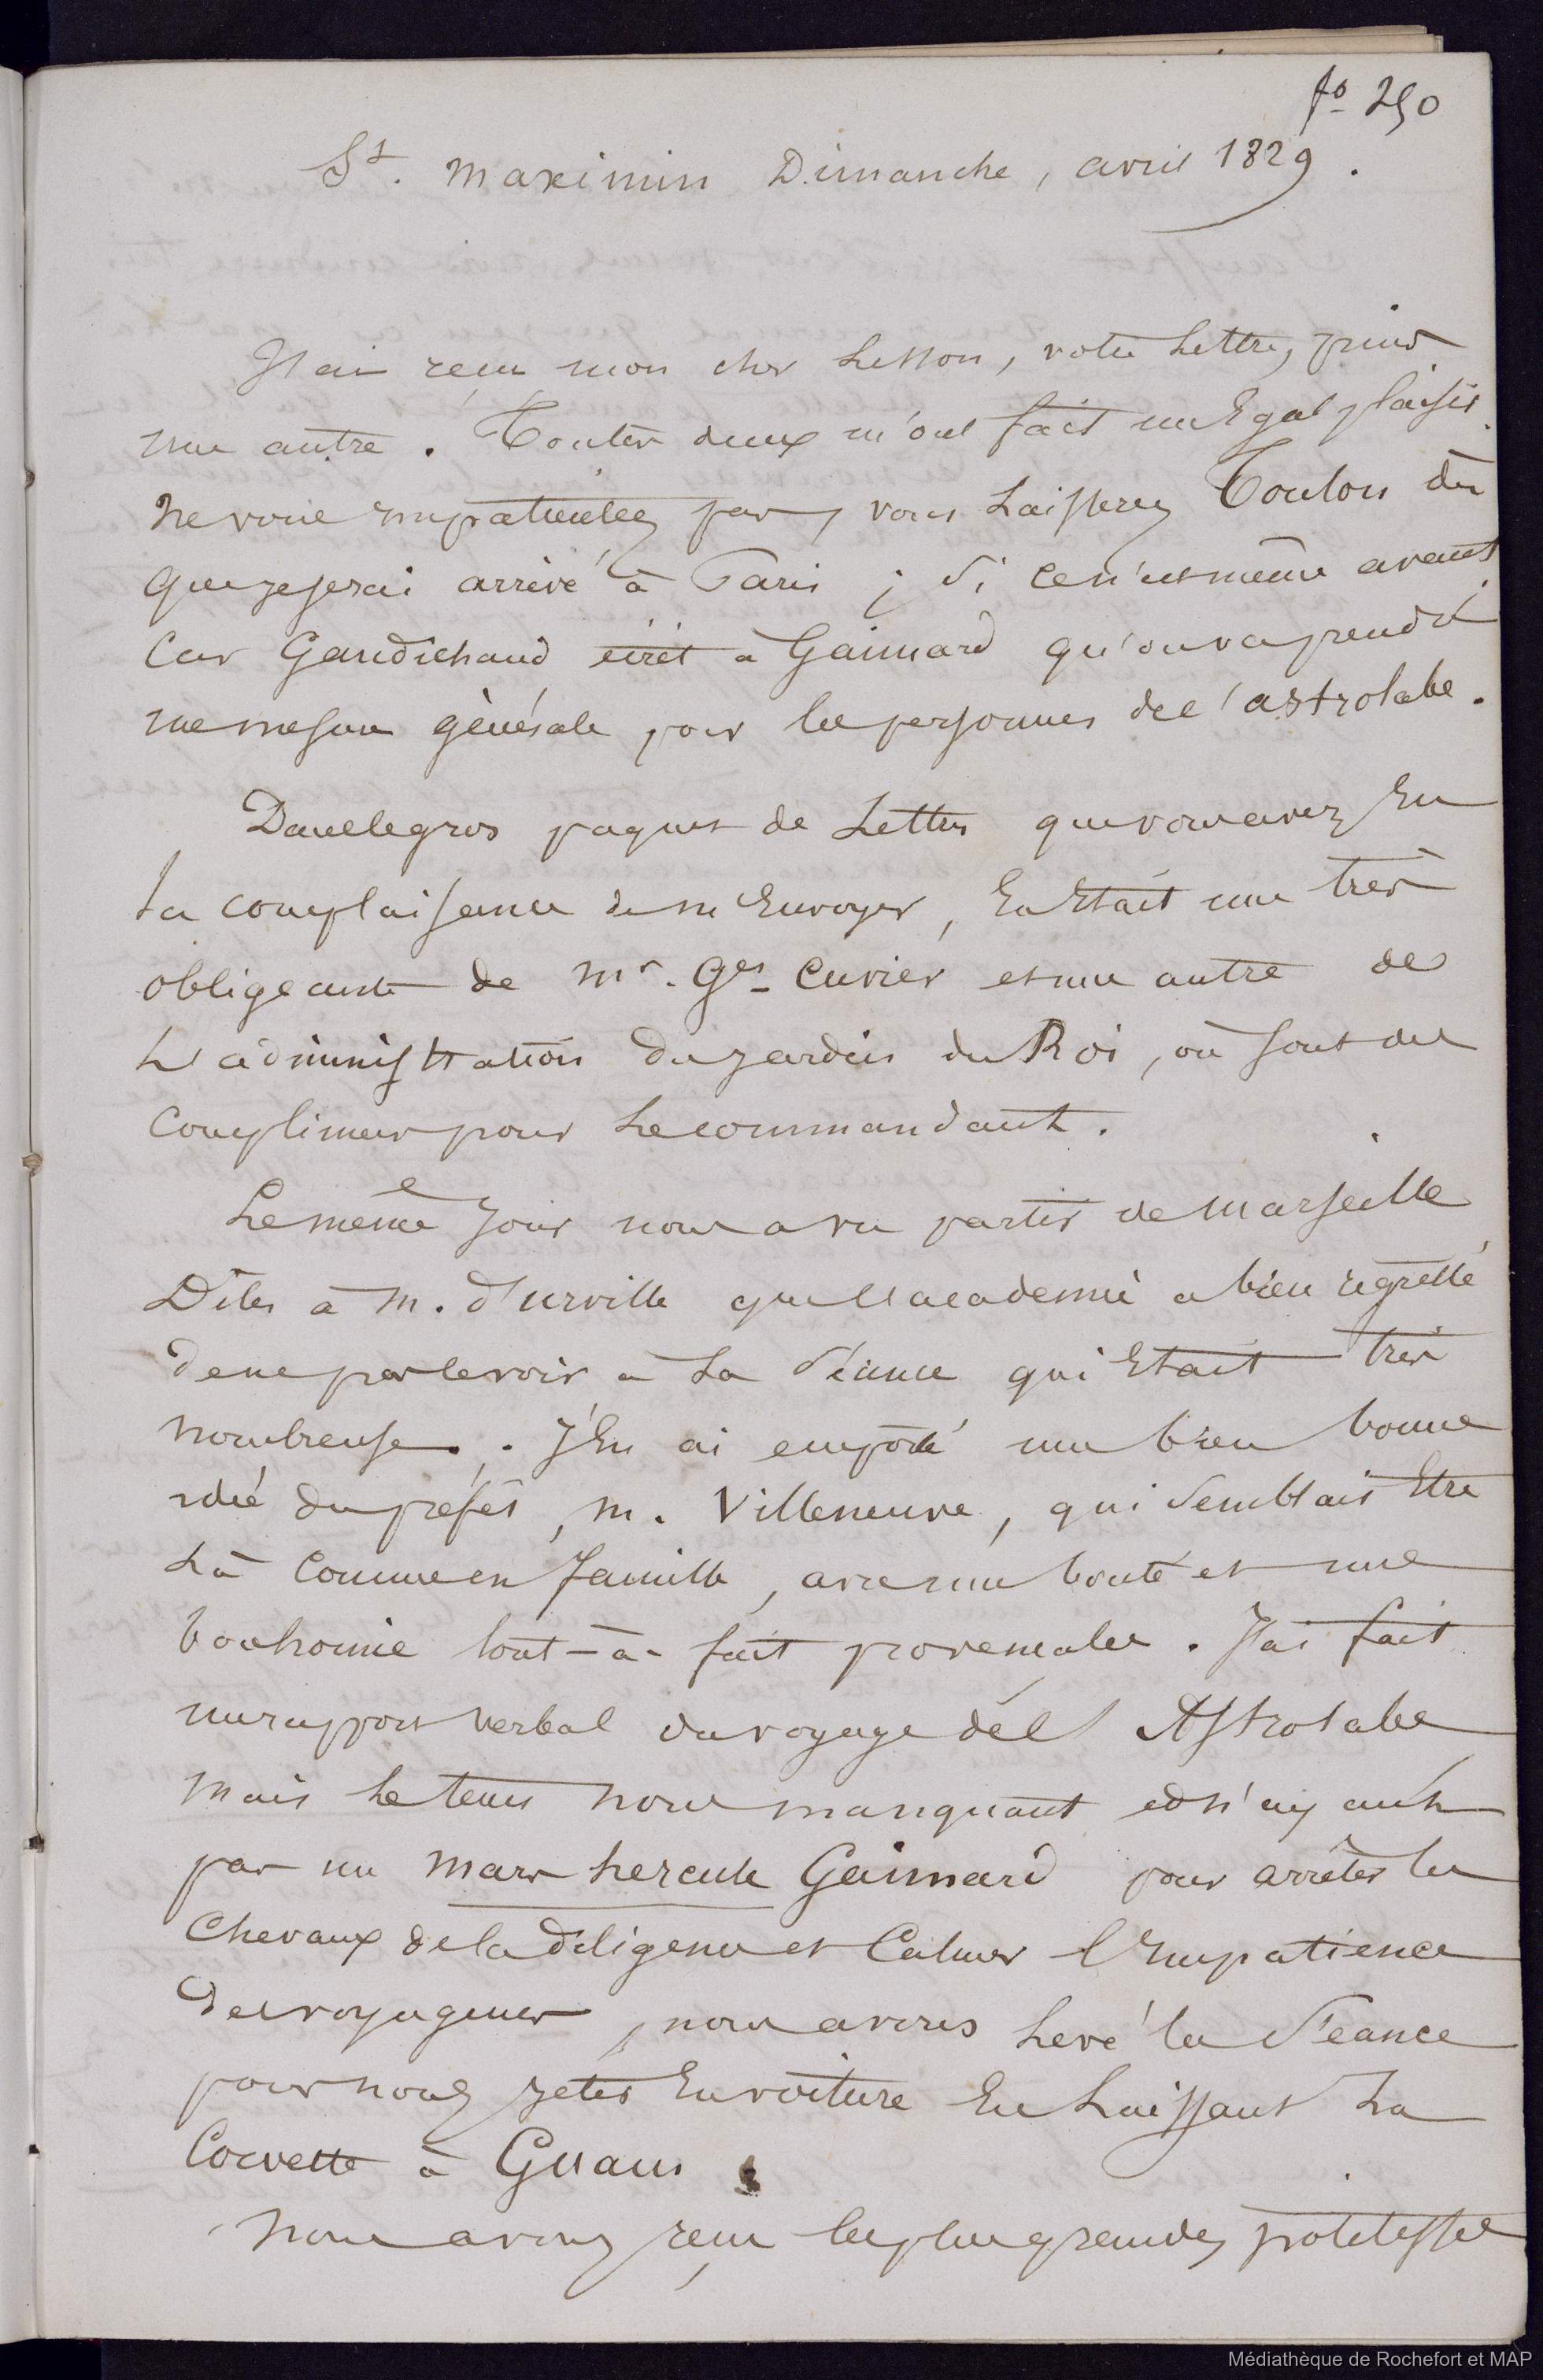 fo 250
St. Maximin Dimanche, avril 1829.
J'ai reçu mon cher Lesson, votre Lettre, puis
une autre. Toutes deux m'ont fait un Egal plaisir.
Ne vous impatientez pas, vous Laisserez Toulon dès
que je serai arrivé à Paris ; si ce n'est même avant
Car Gaudichaud écrit à Gaimard qu'on va prendre
une mesure générale pour les personnes de l'astrolabe.
Dans le gros paquet de Lettres que vous avez Eu
La complaisance de m'Envoyer, En Etait une très
obligeante de Mr. Ges Cuvier et une autre de
L'administration du jardin du Roi, où sont des
Complimens pour Le commandant.
Le même Jour nous a vu partir de Marseille
Dites à M. d'urville que L'académie a bien regretté
de ne pas le voir à La Séance qui Etait très
nombreuse. J'En ai emporté une bien bonne
idée du préfet, M. Villeneuve, qui Semblait Etre
Là Comme en famille, avec une bonté et une
bonhomie tout-à-fait provençales. J'ai fait
un rapport verbal du voyage de L'Astrolabe
Mais Le tems nous manquant et n'ayant
pas un Marc hercule Gaimard pour arrêter les
Chevaux de la diligence et Calmer l'Impatience
des voyageurs, nous avons Levé la Séance
pour nous jeter En voiture En Laissant La
Corvette à Guam.
Nous avons reçu les plus grandes politesses
Médiathèque de Rochefort et MAP